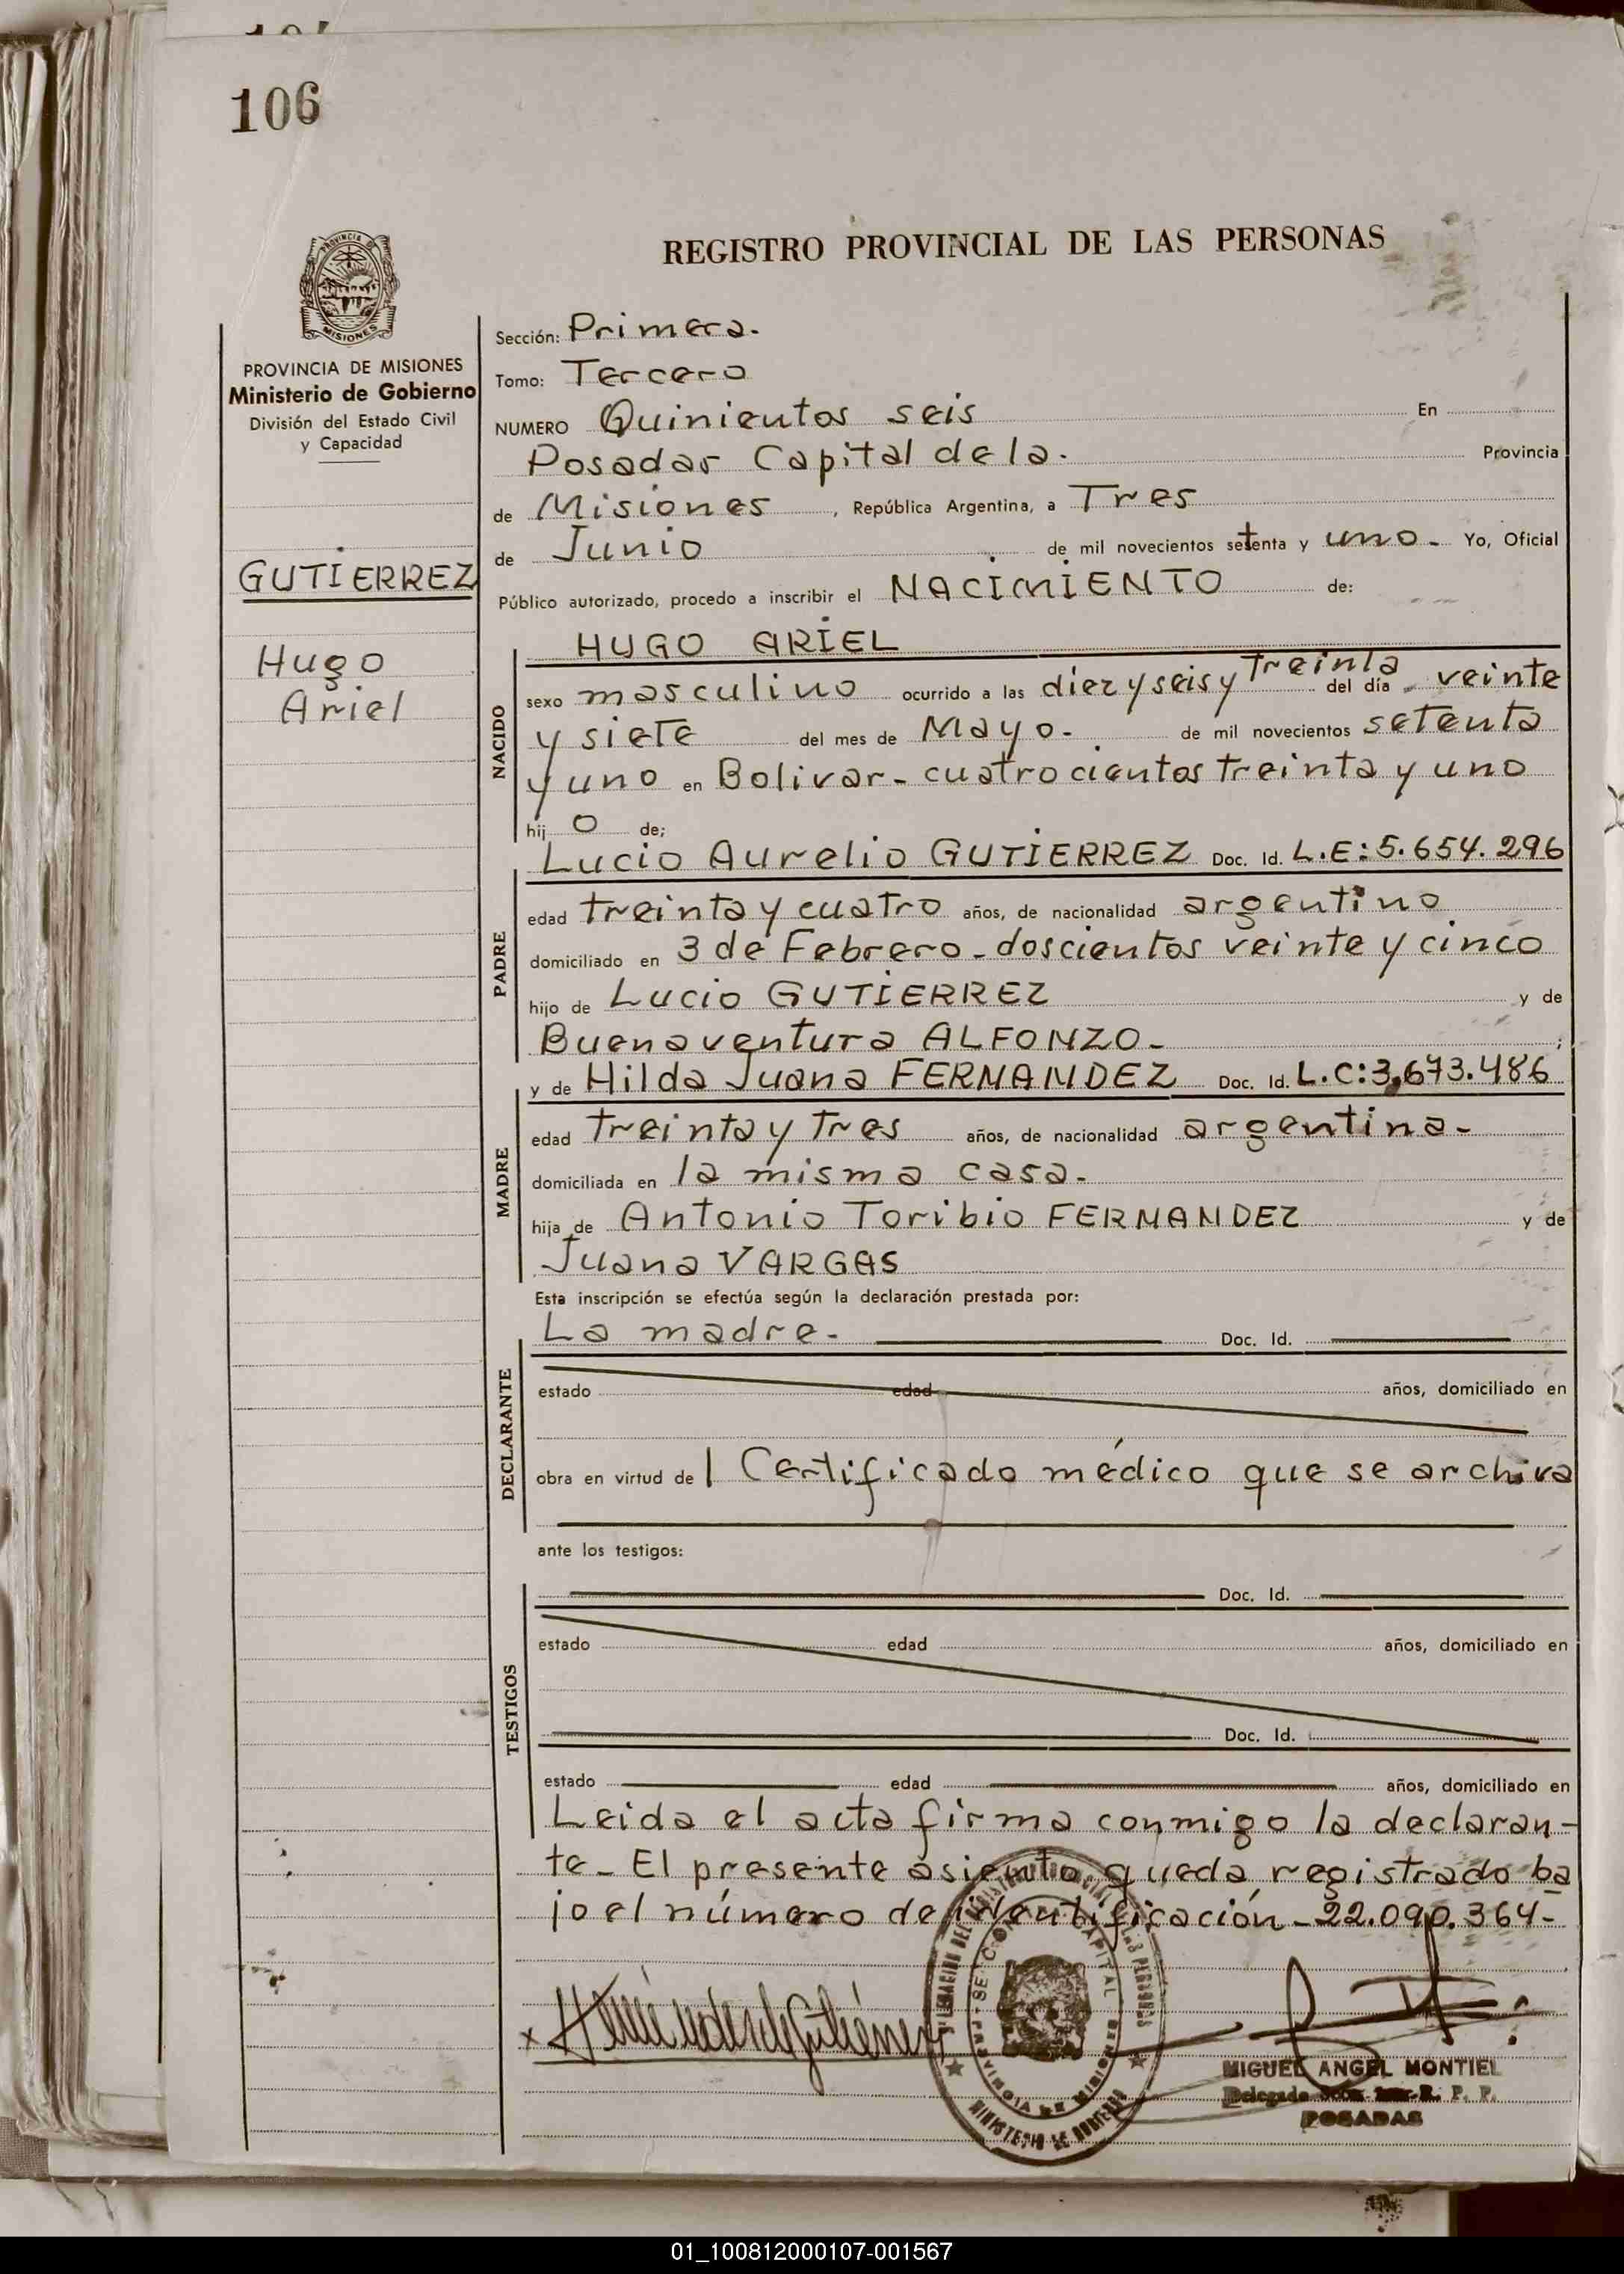 106
REGISTRO PROVINCIAL DE LAS PERSONAS
PROVINCIA DE
MISIONES
PROVINCIA DE MISIONES
Ministerio de Gobierno
División del Estado Civil
y Capacidad
GUTIERREZ
Hugo
Ariel
Sección: Primera.
Tomo: Tercero
NUMERO Quinientos seis En
Posadas Capital de la. Provincia
de Misiones, República Argentina, a Tres
de Junio de mil novecientos setenta y uno. Yo, Oficial
Público autorizado, procedo a inscribir el NACIMIENTO de:
NACIDO
HUGO ARIEL
sexo masculino ocurrido a las diez y seis y treinta del día veinte
y siete del mes de Mayo. de mil novecientos setenta
y uno en Bolivar - cuatrocientos treinta y uno
hij o de;
PADRE
Lucio Aurelio GUTIERREZ Doc. Id. L.E: 5.654.296
edad treinta y cuatro años, de nacionalidad argentino
domiciliado en 3 de Febrero - doscientos veinte y cinco
hijo de Lucio GUTIERREZ y de
Buenaventura ALFONZO - ;
MADRE
y de Hilda Juana FERNANDEZ Doc. Id. L.C: 3,673.486
edad treinta y tres años, de nacionalidad argentina -
domiciliada en la misma casa.
hija de Antonio Toribio FERNANDEZ y de
Juana VARGAS
Esta inscripción se efectúa según la declaración prestada por:
DECLARANTE
La madre. Doc. Id.
estado edad años, domiciliado en
obra en virtud de 1 Certificado médico que se archiva
ante los testigos:
TESTIGOS
Doc. Id.
estado edad años, domiciliado en
Doc. Id.
estado edad años, domiciliado en
Leida el acta firma conmigo la declaran-
te - El presente asiento queda registrado ba
jo el número de identificación - 22.090.364 -
x
PROVINCIA DE MISIONES
MIGUEL ANGEL MONTIEL
Delegado R. P. P.
POSADAS
01_100812000107-001567